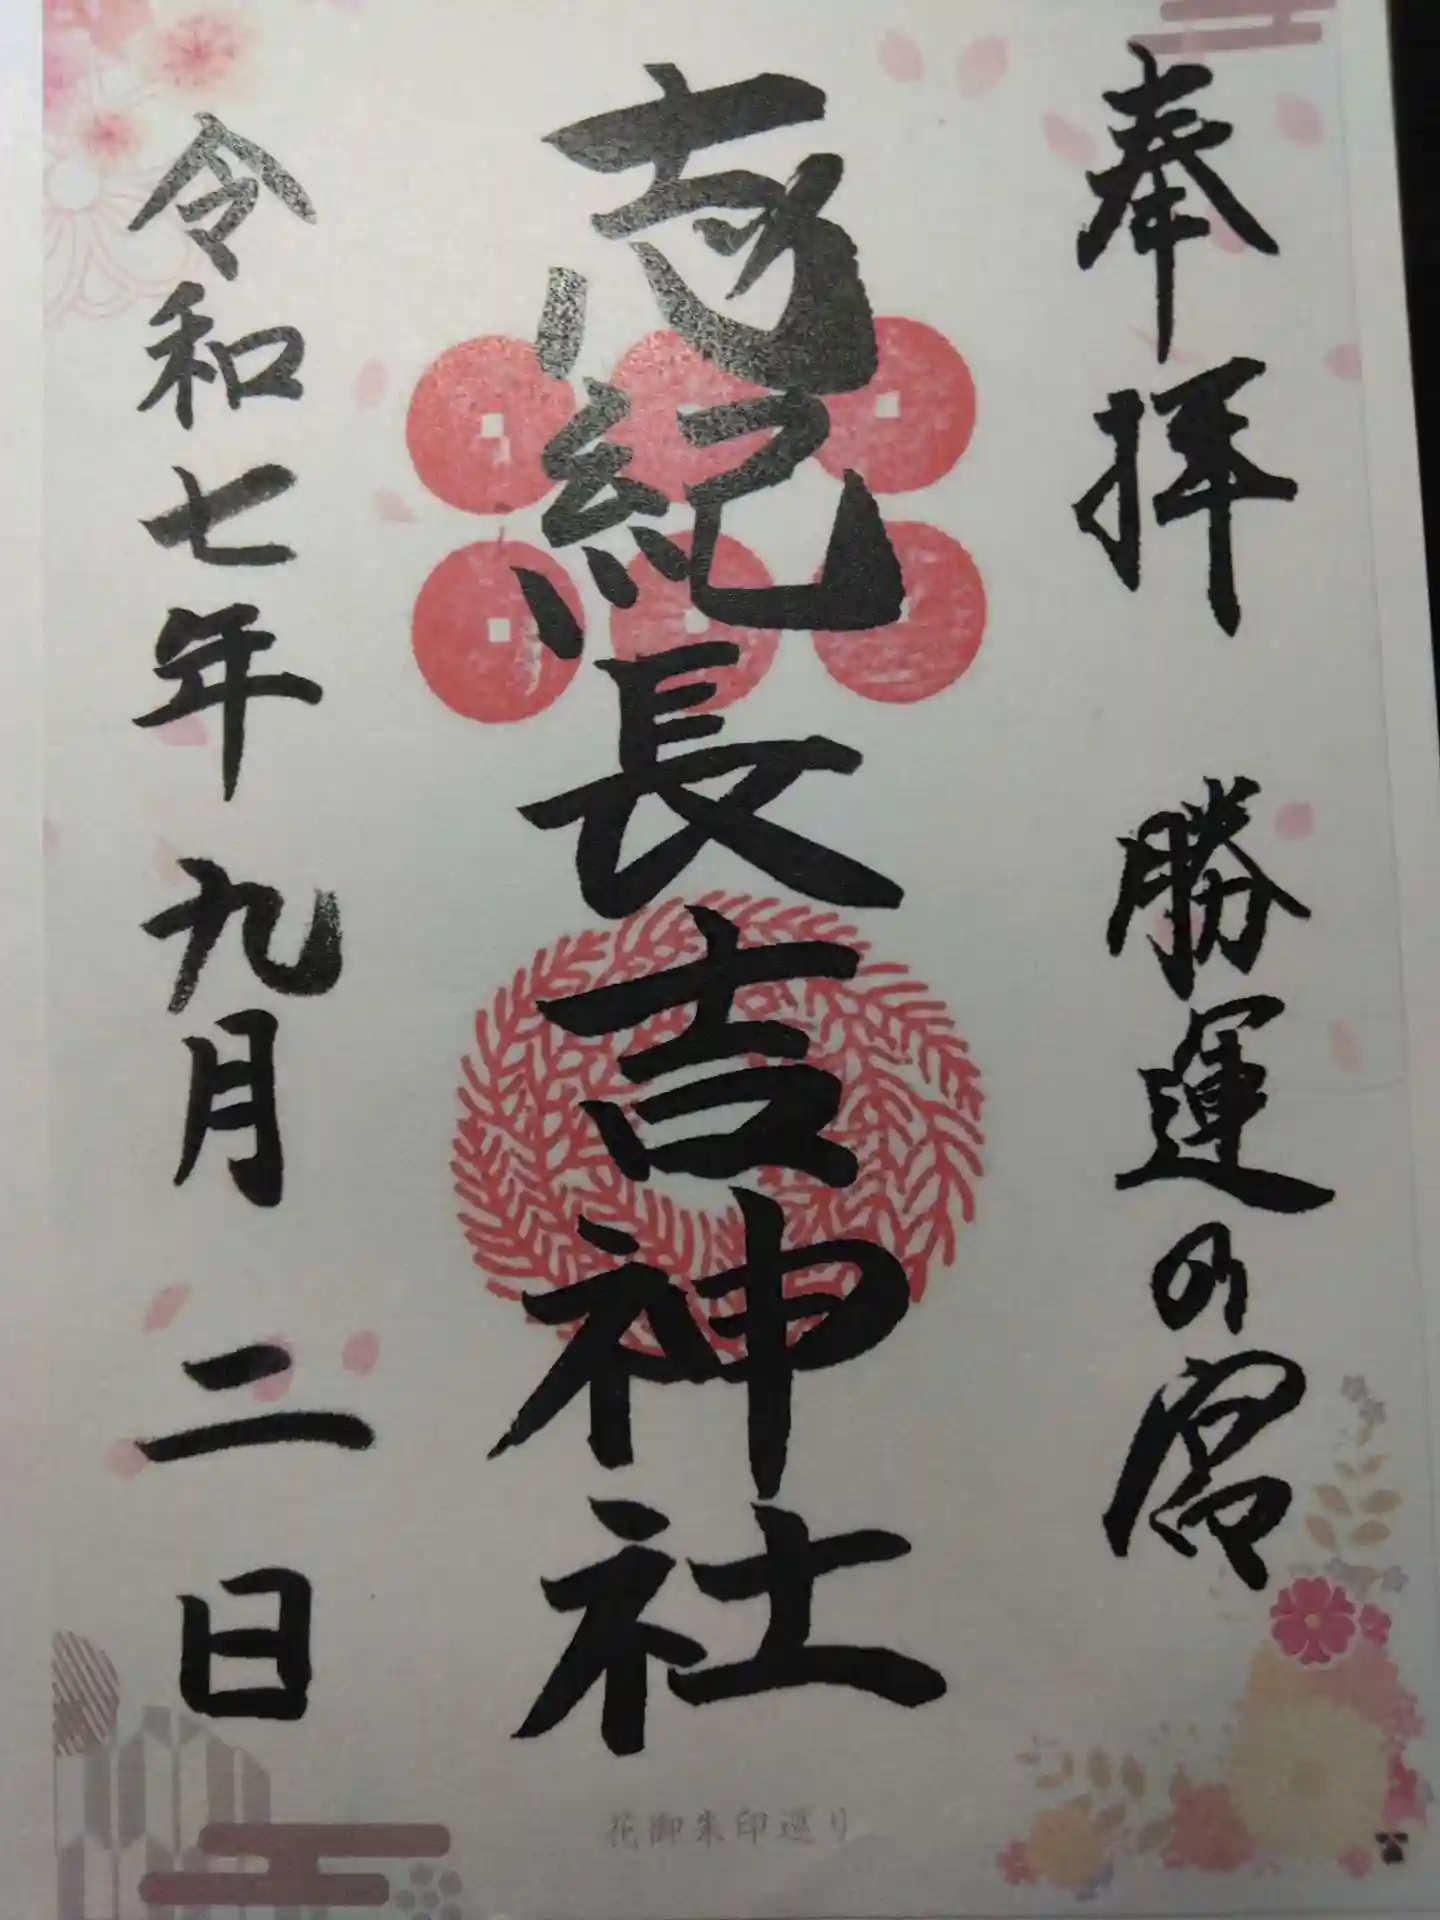 奉拝 勝運の宮
志紀長吉神社
令和七年 九月 二日
花御朱印巡り